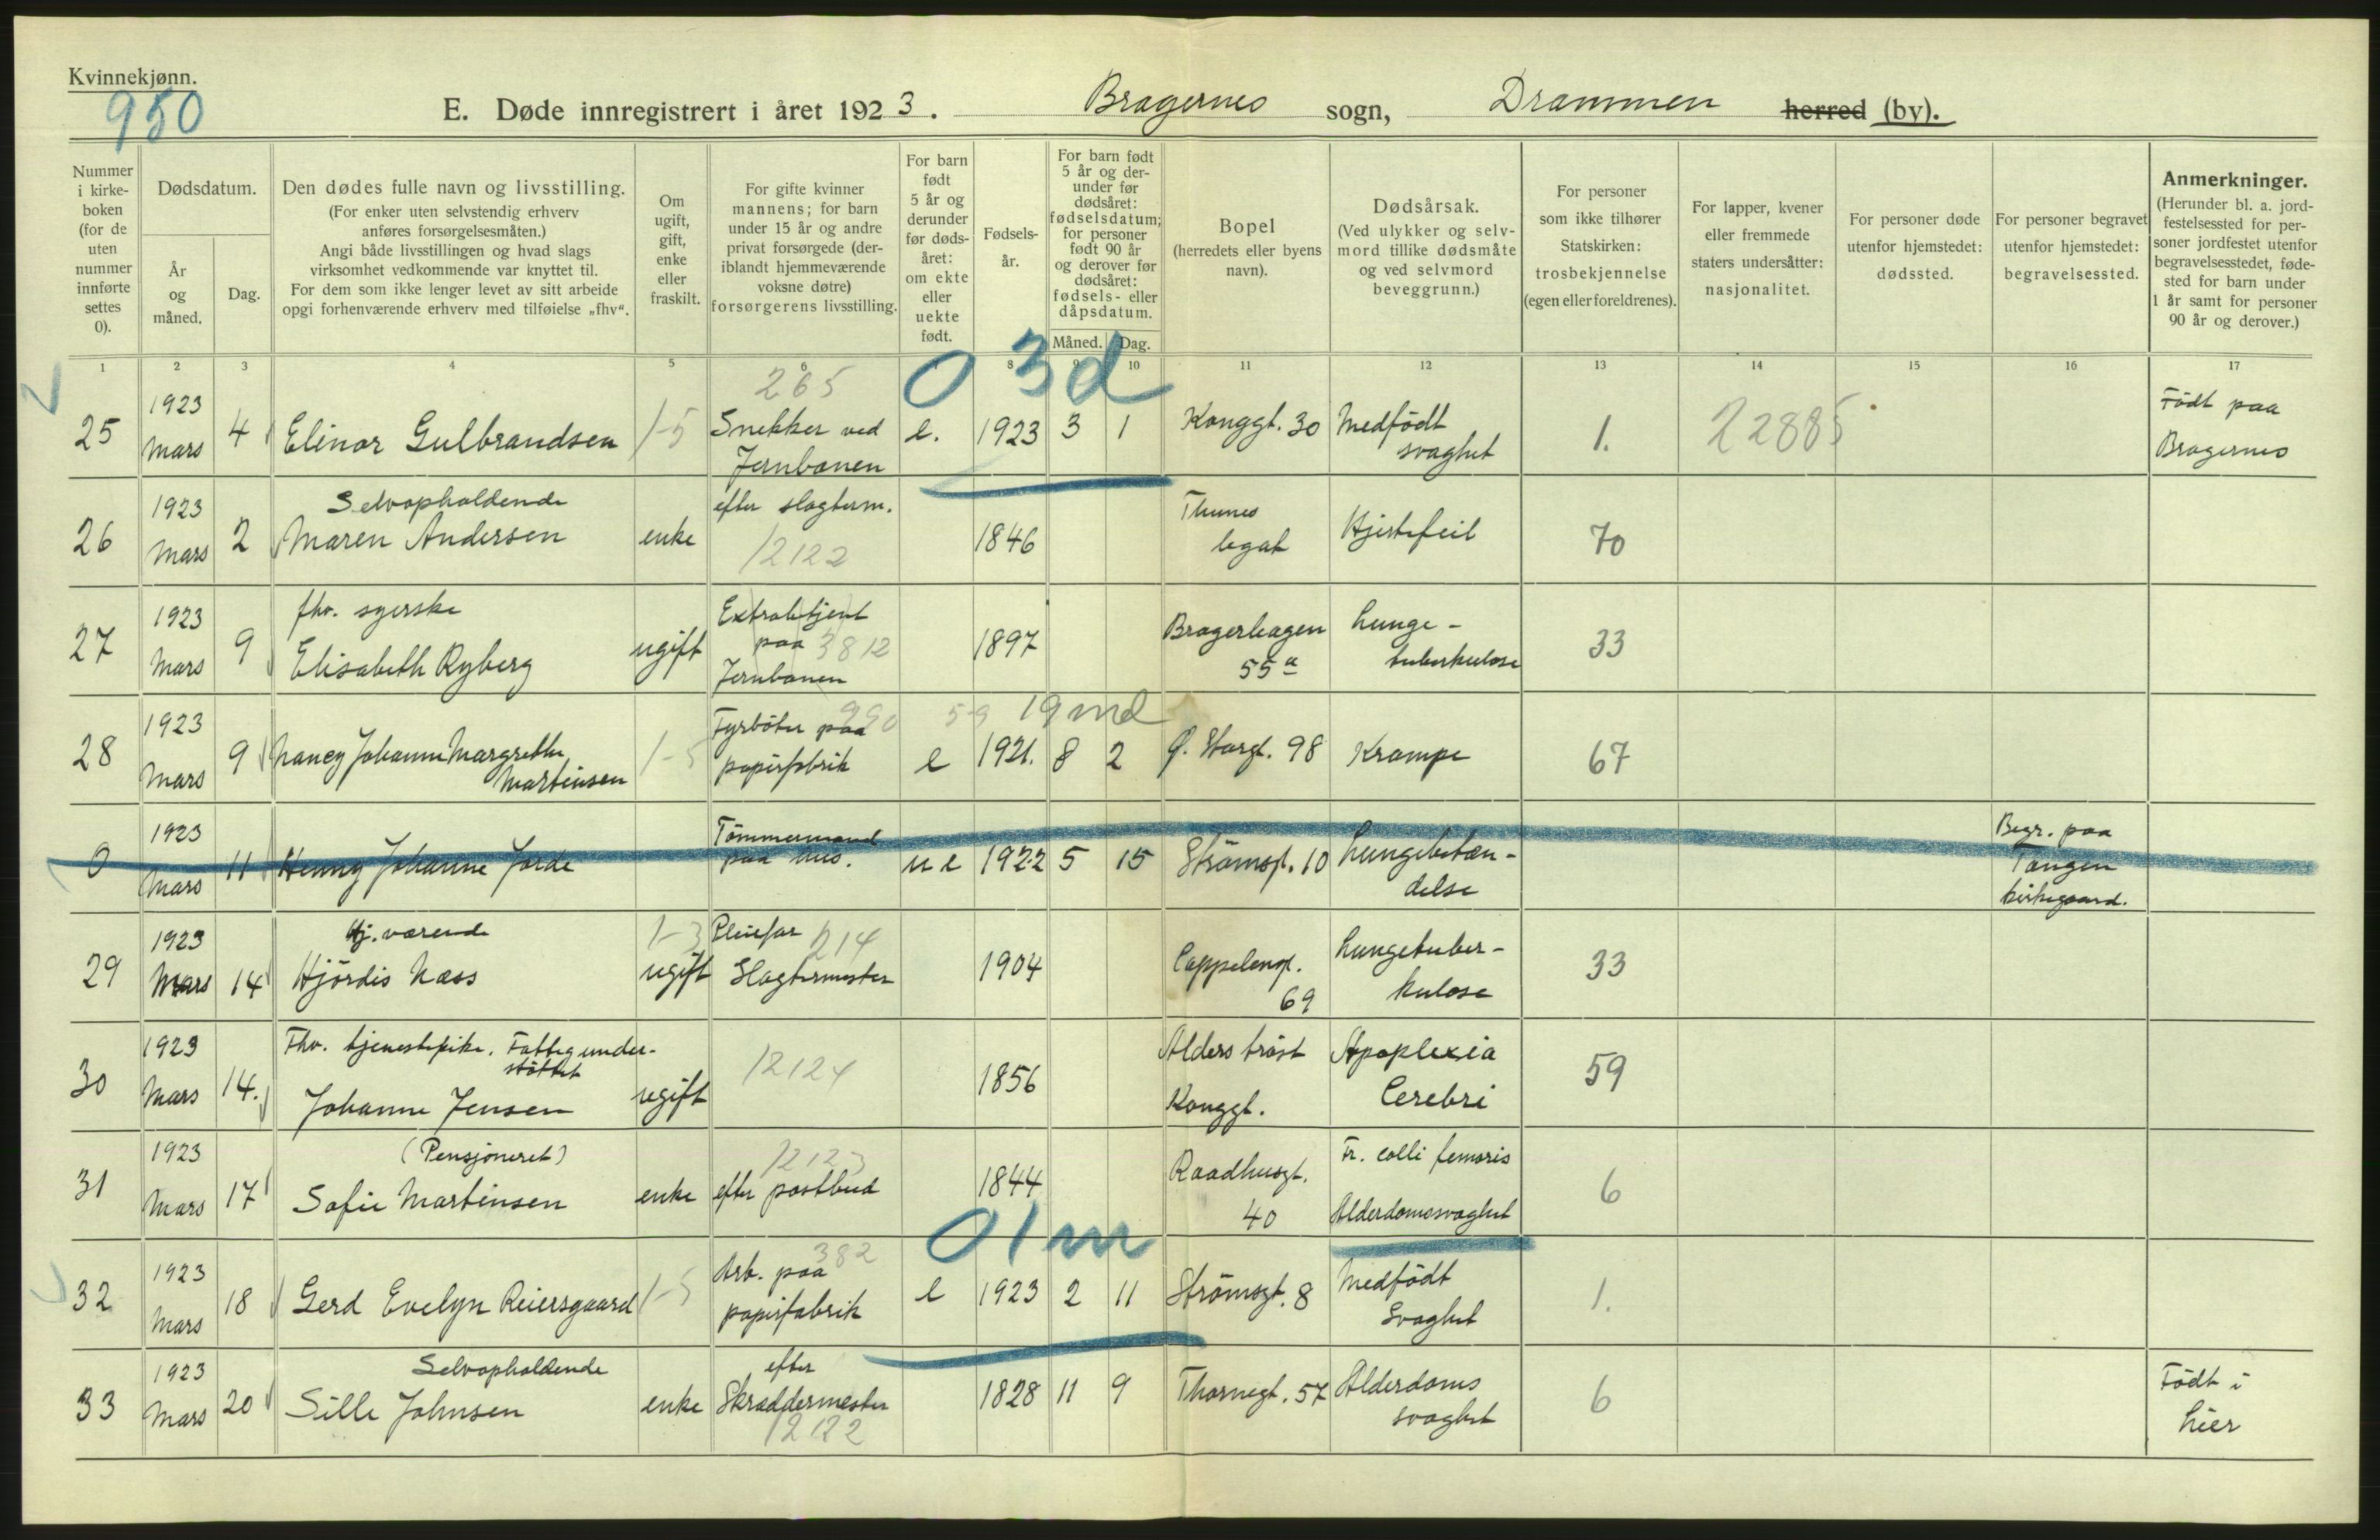 Kvinnekjønn.
950
E. Døde innregistrert i året 1923. Bragernes sogn, Drammen herred (by).
Nummer
i kirke-
boken
(for de
uten
nummer
innførte
settes
0).
Dødsdatum.
År
og
måned.
Dag.
Den dødes fulle navn og livsstilling.
(For enker uten selvstendig erhverv
anføres forsørgelsesmåten.)
Angi både livsstillingen og hvad slags
virksomhet vedkommende var knyttet til.
For dem som ikke lenger levet av sitt arbeide
opgi forhenværende erhverv med tilføielse „fhv“.
Om
ugift,
gift,
enke
eller
fraskilt.
For gifte kvinner
mannens; for barn
under 15 år og andre
privat forsørgede (der-
iblandt hjemmeværende
voksne døtre)
forsørgerens livsstilling.
For barn
født
5 år og
derunder
før døds-
året:
om ekte
eller
uekte
født.
Fødsels-
år.
For barn født
5 år og der-
under før
dødsåret:
fødselsdatum;
for personer
født 90 år
og derover før
dødsåret:
fødsels- eller
dåpsdatum.
Måned. Dag.
Bopel
(herredets eller byens
navn).
Dødsårsak.
(Ved ulykker og selv-
mord tillike dødsmåte
og ved selvmord
beveggrunn.)
For personer
som ikke tilhører
Statskirken:
trosbekjennelse
(egen eller foreldrenes).
For lapper, kvener
eller fremmede
staters undersåtter:
nasjonalitet.
For personer døde
utenfor hjemstedet:
dødssted.
For personer begravet
utenfor hjemstedet:
begravelsessted.
Anmerkninger.
(Herunder bl. a. jord-
festelsessted for per-
soner jordfestet utenfor
begravelsesstedet, føde-
sted for barn under
1 år samt for personer
90 år og derover.)
1 2 3 4 5 6 8 9 10 11 12 13 14 15 16 17
265 0 3 d
1923 Født paa
25 Mars 4 Elinor Gulbrandsen 1-5 Snekker ved e. 1923 3 1 Konggt. 30 Medfödt 1. 22885
Jernbanen svaghet Bragernes
1923 Selvopholdende efter slagterm. Thunes
26 Mars 2 Maren Andersen enke 1846 legat Hjertefeil 70
12122
1923 fhv. syerske Extrabetjent
27 Mars 9 Elisabeth Ryberg ugift paa 3812 1897 Bragerhagen Lunge- 33
Jernbanen 55a tuberkulose
990 59 19 md
1923 Fyrböter paa
28 Mars 9 Nancy Johanne Margrethe 1-5 papirfabrik e 1921. 8 2 Ø. Storgt. 98 Krampe 67
Martinsen
1923 Tömmermand Begr. paa
0 Mars 11 Henny Johanne Jorde paa hus. u e 1922 5 15 Strömsgt. 10 Lungebetæn- Tangen
delse kirkegaard.
1923 Hj. værende 1-3 Pleiefar 214 Lungetuber-
29 Mars 14 Hjördis Næss ugift Slagtermester 1904 Cappelensgt. 33
69 kulose
1923 Fhv. tjenestepike. Fattigunder- Alders tröst Apoplexia
støttet
30 Mars 14. Johanne Jensen ugift 12124 1856 Konggt. Cerebri 59
1923 (Pensjoneret) 12123 Fr. colli femoris
31 Mars 17 Sofie Martinsen enke efter postbud 1844 Raadhusgt. 6
40 Alderdomssvaghet
01 m
1923 Arb. paa 382 Medfödt
32 Mars 18 Gerd Evelyn Reiersgaard 1-5 papirfabrik e 1923 2 11 Strömsgt. 8 Svaghet 1.
1923 Selvopholdende efter Født i
33 Mars 20 Sille Johnsen enke Skræddermester 1828 11 9 Thornegt. 57 Alderdoms 6
12122 svaghet Lier